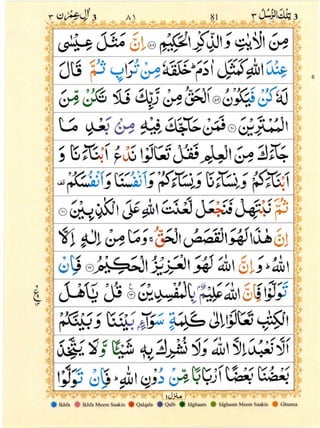 تلك الرسل ٣ 81 ٨١ ال عمرن ٣
مِنَ الْاٰيٰتِ وَالذِّكْرِ الْحَكِيْمِ ۝ اِنَّ مَثَلَ عِيْسٰى
عِنْدَ اللّٰهِ كَمَثَلِ اٰدَمَ ؕ خَلَقَهٗ مِنْ تُرَابٍ ثُمَّ قَالَ
لَهٗ كُنْ فَيَكُوْنُ ۝ اَلْحَقُّ مِنْ رَّبِّكَ فَلَا تَكُنْ مِّنَ
الْمُمْتَرِيْنَ ۝ فَمَنْ حَآجَّكَ فِيْهِ مِنْۢ بَعْدِ مَا
جَآءَكَ مِنَ الْعِلْمِ فَقُلْ تَعَالَوْا نَدْعُ اَبْنَآءَنَا وَ
اَبْنَآءَكُمْ وَنِسَآءَنَا وَنِسَآءَكُمْ وَاَنْفُسَنَا وَاَنْفُسَكُمْ
ثُمَّ نَبْتَهِلْ فَنَجْعَلْ لَّعْنَتَ اللّٰهِ عَلَى الْكٰذِبِيْنَ ۝
اِنَّ هٰذَا لَهُوَ الْقَصَصُ الْحَقُّ ۚ وَمَا مِنْ اِلٰهٍ اِلَّا
اللّٰهُ ؕ وَاِنَّ اللّٰهَ لَهُوَ الْعَزِيْزُ الْحَكِيْمُ ۝ فَاِنْ
تَوَلَّوْا فَاِنَّ اللّٰهَ عَلِيْمٌۢ بِالْمُفْسِدِيْنَ ۝ قُلْ يٰۤاَهْلَ
الْكِتٰبِ تَعَالَوْا اِلٰى كَلِمَةٍ سَوَآءٍۢ بَيْنَنَا وَبَيْنَكُمْ
اَلَّا نَعْبُدَ اِلَّا اللّٰهَ وَلَا نُشْرِكَ بِهٖ شَيْـًٔا وَّلَا يَتَّخِذَ
بَعْضُنَا بَعْضًا اَرْبَابًا مِّنْ دُوْنِ اللّٰهِ ؕ فَاِنْ تَوَلَّوْا
Ikhfa Ikhfa Meem Saakin Qalqala Qalb Idghaam Idghaam Meem Saakin Ghunna